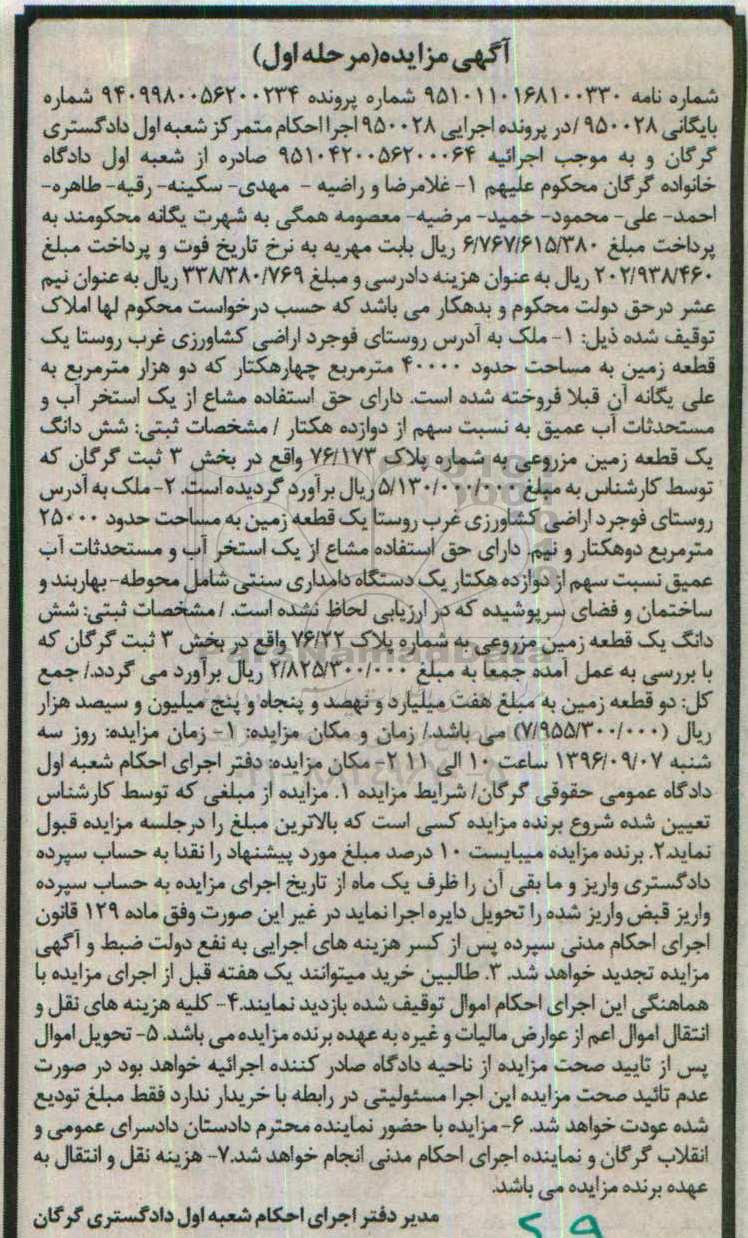 آگهی مزایده(مرحله اول)
شماره نامه ۹۵۱۰۱۱۰۱۶۸۱۰۰۳۳۰ شماره پرونده ۹۴۰۹۹۸۰۰۵۶۲۰۰۲۳۴ شماره
بایگانی ۹۵۰۰۲۸ /در پرونده اجرایی ۹۵۰۰۲۸ اجرا احکام متمرکز شعبه اول دادگستری
گرگان و به موجب اجرائیه ۹۵۱۰۴۲۰۰۵۶۲۰۰۰۶۴ صادره از شعبه اول دادگاه
خانواده گرگان محکوم علیهم ۱- غلامرضا و راضیه - مهدی- سکینه- رقیه- طاهره-
احمد- علی- محمود- حمید- مرضیه- معصومه همگی به شهرت یگانه محکومند به
پرداخت مبلغ ۶/۷۶۷/۶۱۵/۳۸۰ ریال بابت مهریه به نرخ تاریخ فوت و پرداخت مبلغ
۲۰۲/۹۳۸/۴۶۰ ریال به عنوان هزینه دادرسی و مبلغ ۳۳۸/۳۸۰/۷۶۹ ریال به عنوان نیم
عشر درحق دولت محکوم و بدهکار می باشد که حسب درخواست محکوم لها املاک
توقیف شده ذیل: ۱- ملک به آدرس روستای فوجرد اراضی کشاورزی غرب روستا یک
قطعه زمین به مساحت حدود ۴۰۰۰۰ مترمربع چهارهکتار که دو هزار مترمربع به
علی یگانه آن قبلا فروخته شده است. دارای حق استفاده مشاع از یک استخر آب و
مستحدثات آب عمیق به نسبت سهم از دوازده هکتار / مشخصات ثبتی: شش دانگ
یک قطعه زمین مزروعی به شماره پلاک ۷۶/۱۷۳ واقع در بخش ۳ ثبت گرگان که
توسط کارشناس به مبلغ ۵/۱۳۰/۰۰۰/۰۰۰ ریال برآورد گردیده است. ۲- ملک به آدرس
روستای فوجرد اراضی کشاورزی غرب روستا یک قطعه زمین به مساحت حدود ۲۵۰۰۰
مترمربع دوهکتار و نیم. دارای حق استفاده مشاع از یک استخر آب و مستحدثات آب
عمیق نسبت سهم از دوازده هکتار یک دستگاه دامداری سنتی شامل محوطه- بهاربند و
ساختمان و فضای سرپوشیده که در ارزیابی لحاظ نشده است. / مشخصات ثبتی: شش
دانگ یک قطعه زمین مزروعی به شماره پلاک ۷۶/۲۲ واقع در بخش ۳ ثبت گرگان که
با بررسی به عمل آمده جمعا به مبلغ ۲/۸۲۵/۳۰۰/۰۰۰ ریال برآورد می گردد./ جمع
کل: دو قطعه زمین به مبلغ هفت میلیارد و نهصد و پنجاه و پنج میلیون و سیصد هزار
ریال (۷/۹۵۵/۳۰۰/۰۰۰) می باشد./ زمان و مکان مزایده: ۱- زمان مزایده: روز سه
شنبه ۱۳۹۶/۰۹/۰۷ ساعت ۱۰ الی ۱۱ ۲- مکان مزایده: دفتر اجرای احکام شعبه اول
دادگاه عمومی حقوقی گرگان/ شرایط مزایده ۱. مزایده از مبلغی که توسط کارشناس
تعیین شده شروع برنده مزایده کسی است که بالاترین مبلغ را درجلسه مزایده قبول
نماید.۲. برنده مزایده میبایست ۱۰ درصد مبلغ مورد پیشنهاد را نقدا به حساب سپرده
دادگستری واریز و ما بقی آن را ظرف یک ماه از تاریخ اجرای مزایده به حساب سپرده
واریز قبض واریز شده را تحویل دایره اجرا نماید در غیر این صورت وفق ماده ۱۲۹ قانون
اجرای احکام مدنی سپرده پس از کسر هزینه های اجرایی به نفع دولت ضبط و آگهی
مزایده تجدید خواهد شد. ۳. طالبین خرید میتوانند یک هفته قبل از اجرای مزایده با
هماهنگی این اجرای احکام اموال توقیف شده بازدید نمایند.۴- کلیه هزینه های نقل و
انتقال اموال اعم از عوارض مالیات و غیره به عهده برنده مزایده می باشد. ۵- تحویل اموال
پس از تایید صحت مزایده از ناحیه دادگاه صادر کننده اجرائیه خواهد بود در صورت
عدم تائید صحت مزایده این اجرا مسئولیتی در رابطه با خریدار ندارد فقط مبلغ تودیع
شده عودت خواهد شد. ۶- مزایده با حضور نماینده محترم دادستان دادسرای عمومی و
انقلاب گرگان و نماینده اجرای احکام مدنی انجام خواهد شد.۷- هزینه نقل و انتقال به
عهده برنده مزایده می باشد.
مدیر دفتر اجرای احکام شعبه اول دادگستری گرگان